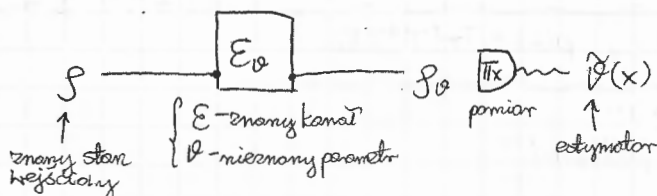 ρ
ε_ϑ
ρ_ϑ
Πx
ϑ̃(x)
pomiar
↑
znany stan
wejściowy
{ ε - znany kanał
{ ϑ - nieznany parametr
↑
estymator